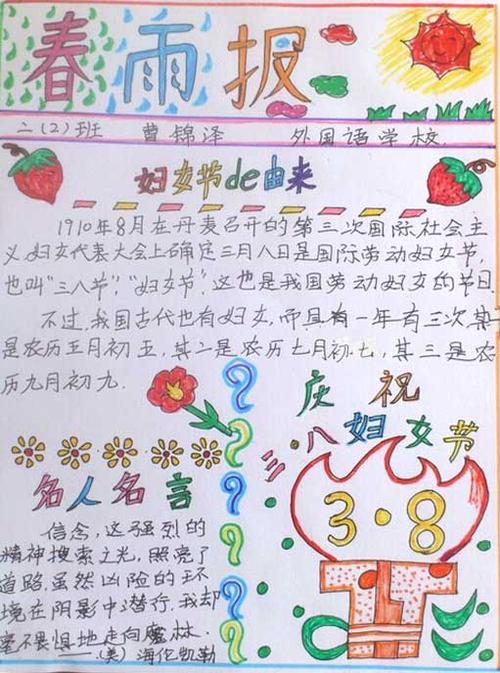 春雨报
二(2)班 曹锦泽 外国语学校
妇女节de由来
1910年8月在丹麦召开的第三次国际社会主
义妇女代表大会上确定三月八日是国际劳动妇女节,
也叫"三八节","妇女节",这也是我国劳动妇女的节日.
不过,我国古代也有妇女,而且有一年有三次其一
是农历五月初五,其二是农历七月初七,其三是农
历九月初九.
庆祝
三·八妇女节
3·8
名人名言
信念,这强烈的
精神搜索之光,照亮了
道路,虽然凶险的环
境在阴影中潜行,我却
毫不畏惧地走向魔林.
——(美)海伦凯勒